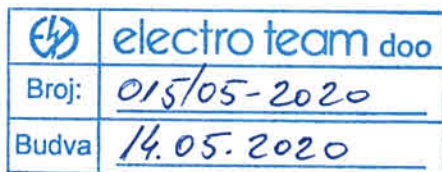 electro team doo
Broj: 015/05-2020
Budva 14.05.2020